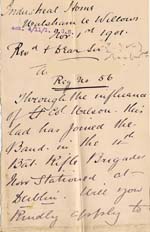 Industrial Home
Walsham le Willows
Nov 1st 1901.
Revd & Dear Sir
Reg No 56
Through the influence
of Col Wilson - this
lad has joined the
Band in the
Bat. Rifle Brigade
Now Stationed at
Dublin. Will you
Kindly apply to